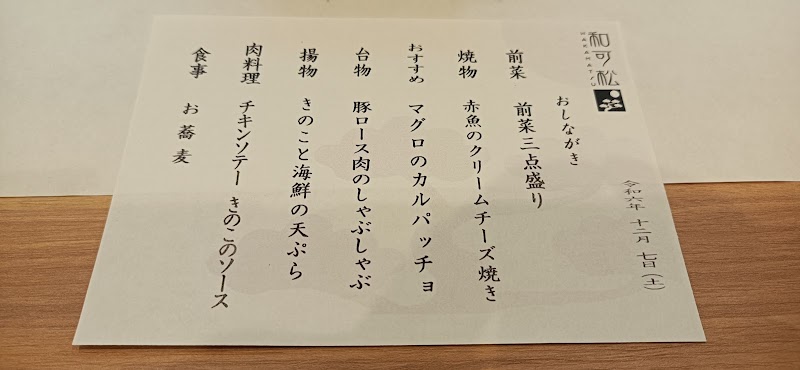 和可松
WAKAMATSU
令和六年 十二月 七日(土)
おしながき
前菜 前菜三点盛り
焼物 赤魚のクリームチーズ焼き
おすすめ マグロのカルパッチョ
台物 豚ロース肉のしゃぶしゃぶ
揚物 きのこと海鮮の天ぷら
肉料理 チキンソテー きのこのソース
食事 お蕎麦